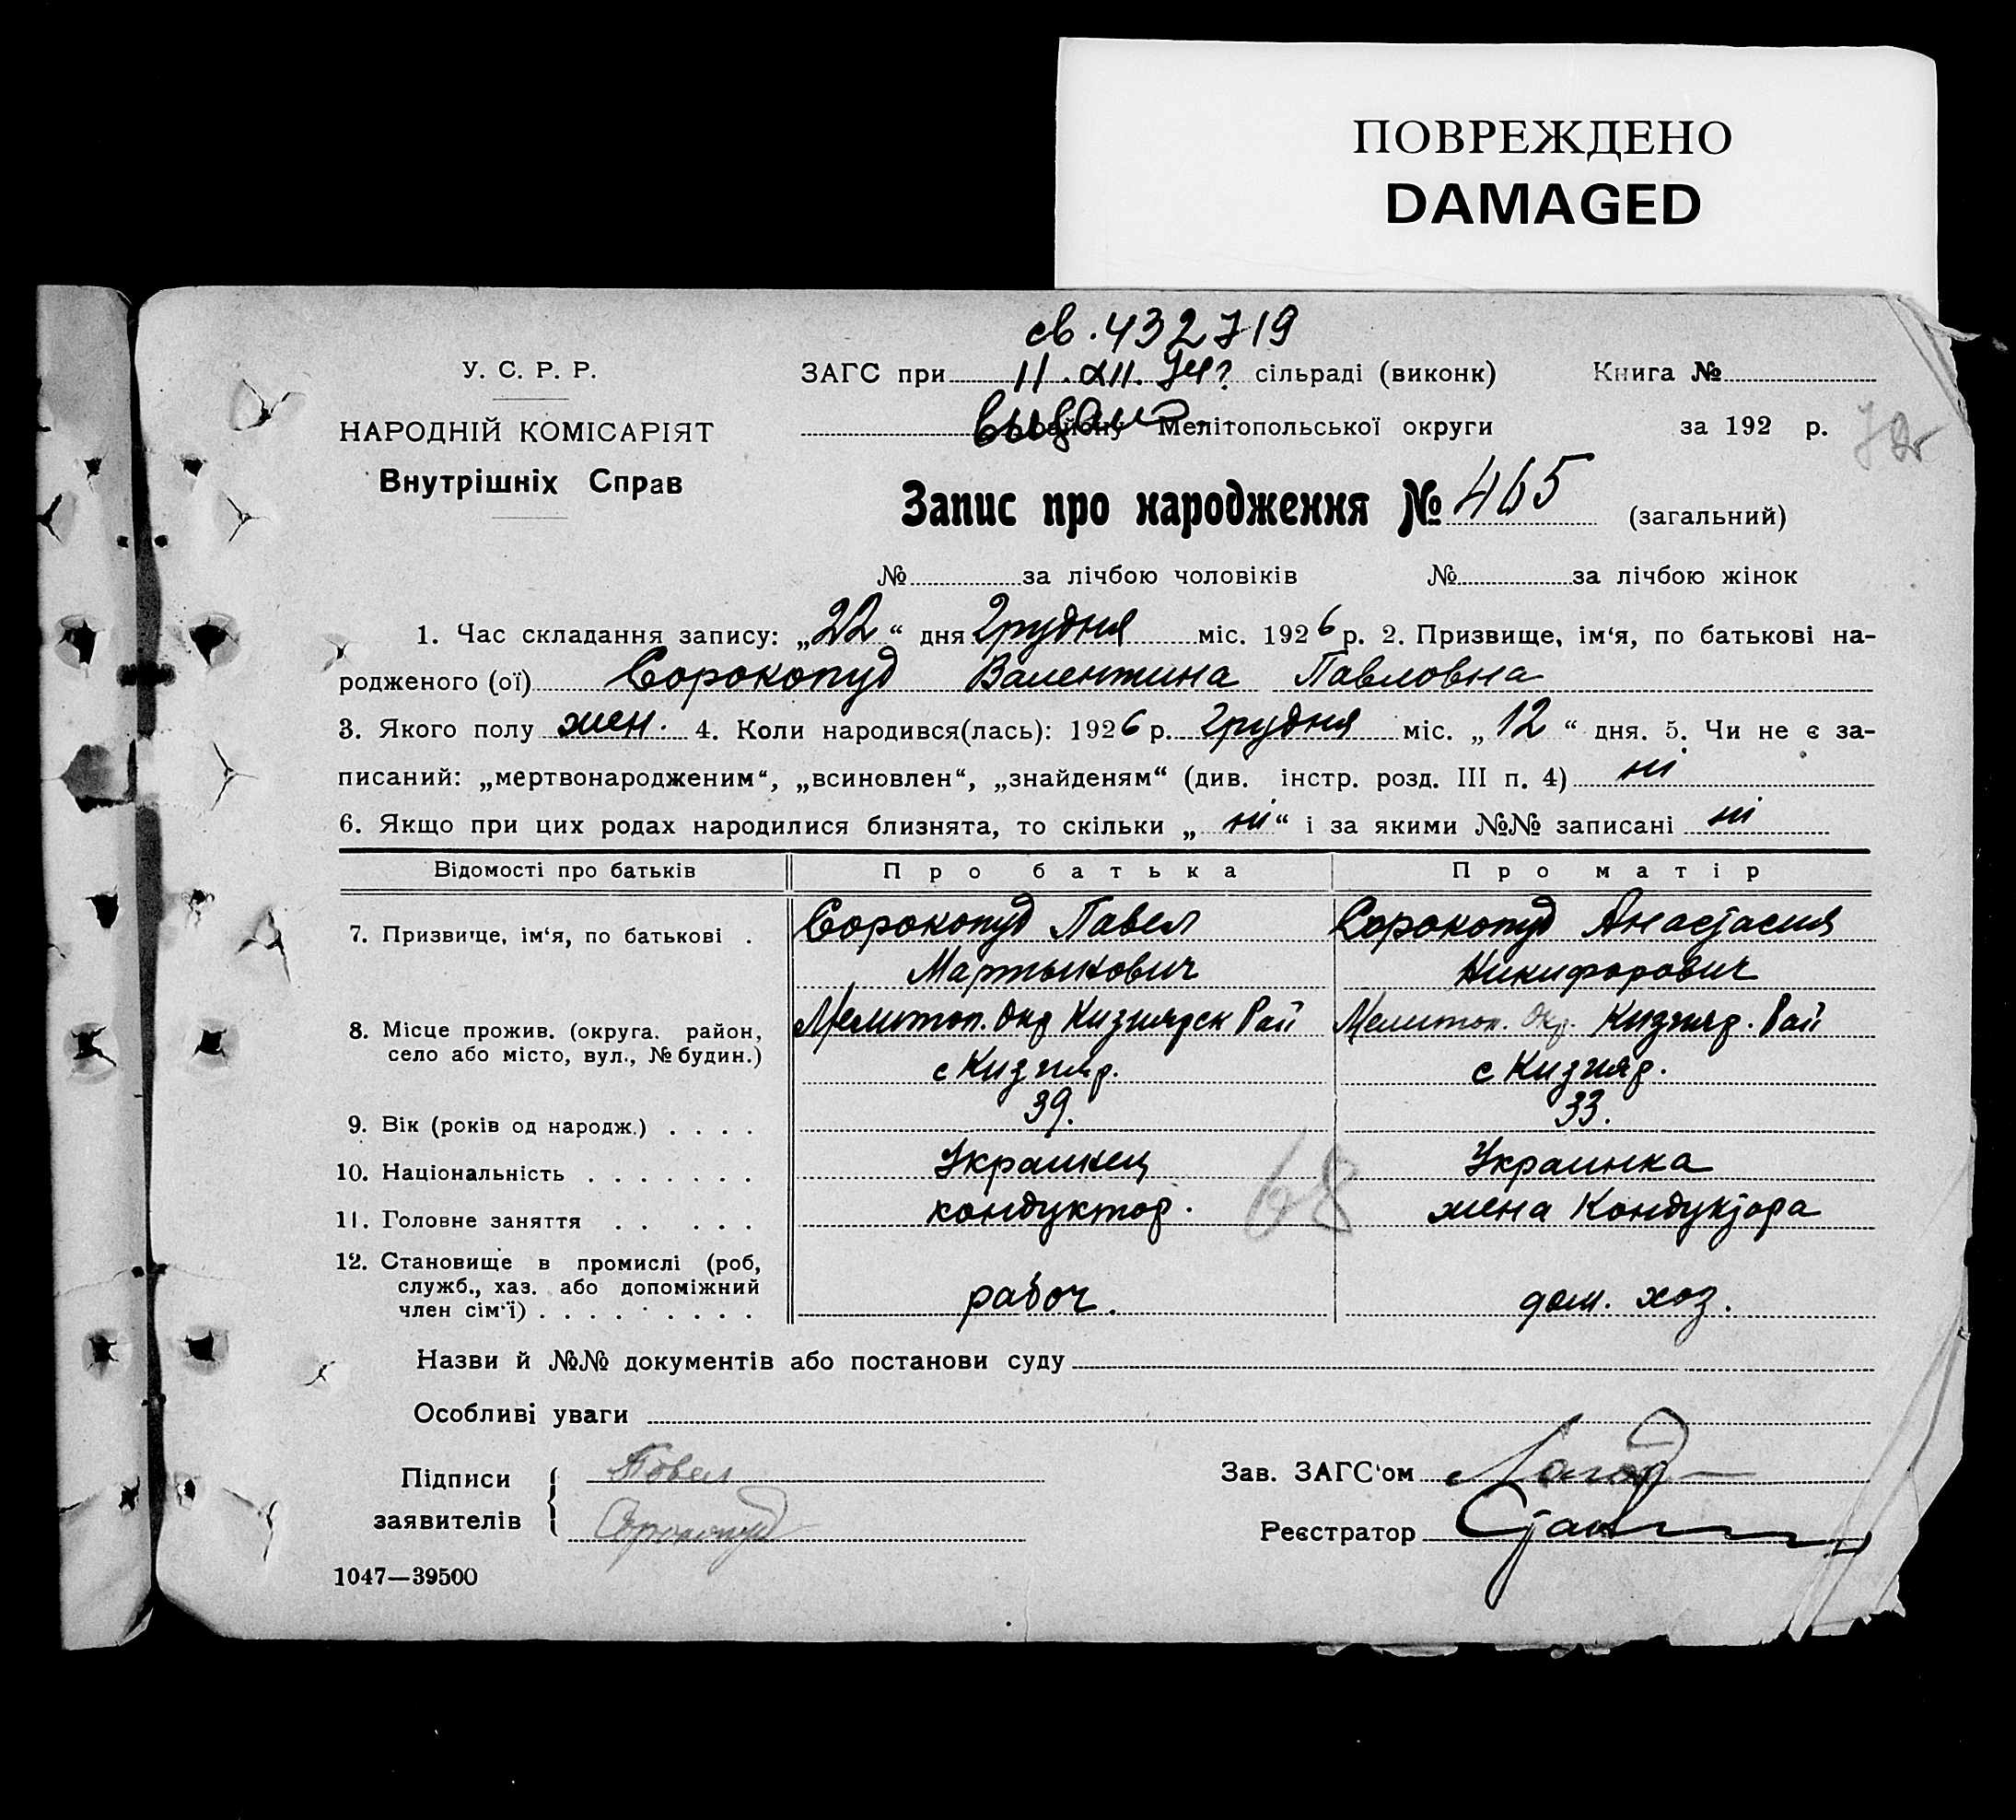 ПОВРЕЖДЕНО
DAMAGED
св. 432719
У. С. Р. Р.
ЗАГС при 11. XII. сільраді (виконк) Книга №
НАРОДНІЙ КОМІСАРІЯТ
выдано району Мелітопольської округи за 192 р.
Внутрішніх Справ
Запис про народження № 465 (загальний)
№ за лічбою чоловіків № за лічбою жінок
1. Час складання запису: „22“ дня Грудня міс. 1926 р. 2. Призвище, ім‘я, по батькові на-
родженого (ої) Сорокопуд Валентина Павловна
3. Якого полу жен. 4. Коли народився(лась): 1926 р. Грудня міс. „12“ дня. 5. Чи не є за-
писаний: „мертвонародженим“, „всиновлен“, „знайденям“ (див. інстр. розд. III п. 4) ні
6. Якщо при цих родах народилися близнята, то скільки „ні“ і за якими №№ записані ні
Відомості про батьків Про батька Про матір
7. Призвище, ім‘я, по батькові . Сорокопуд Павел Сорокопуд Анастасия
Мартынович Никифорович
8. Місце прожив. (округа. район, Мелитоп. Окр Кизиярск Рай Мелитоп. Окр. Кизияр. Рай
село або місто, вул., № будин.) с Кизияр. с Кизияр.
9. Вік (років од народж.) . . . . 39. 33.
10. Національність . . . . . . . Украинец Украинка
11. Головне заняття . . . . . кондуктор. жена Кондуктора
68
12. Становище в промислі (роб,
служб., хаз. або допоміжний
член сім‘ї) . . . . . . . . рабоч. дом. хоз.
Назви й №№ документів або постанови суду
Особливі уваги
Підписи Павел Зав. ЗАГС‘ом
заявителів Сорокопуд Реєстратор
1047—39500